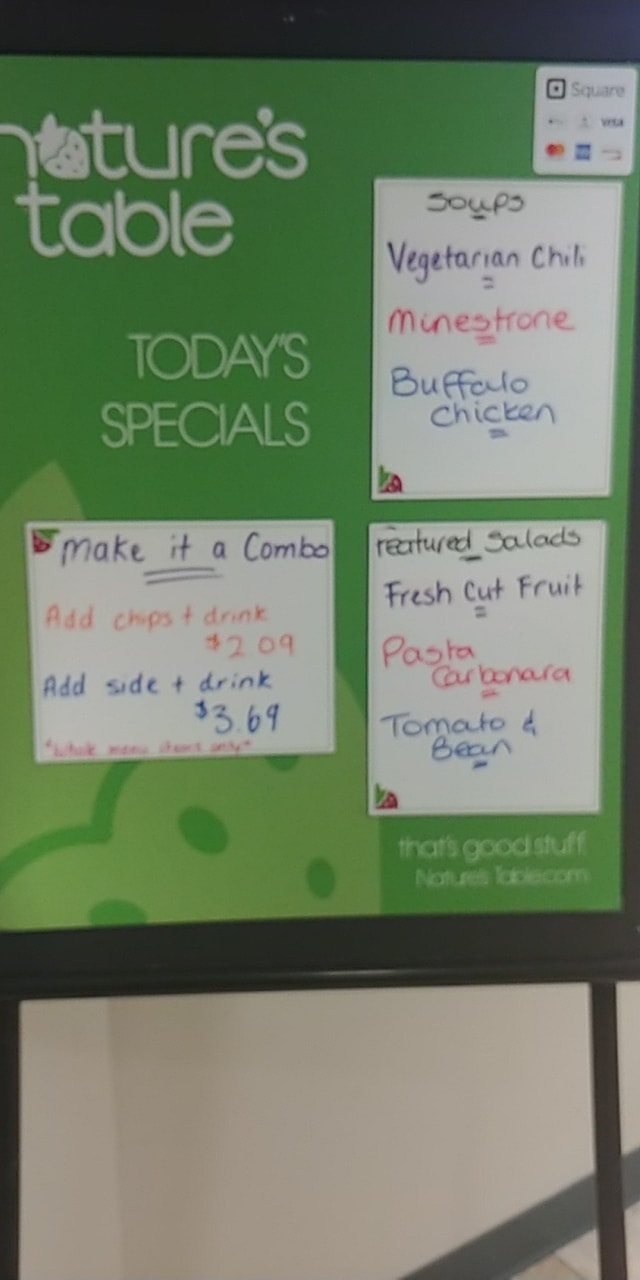 nature's
table
TODAY'S
SPECIALS
Square
VISA
Soups
Vegetarian Chili
Minestrone
Buffalo
Chicken
Make it a Combo
Add chips + drink
$2.09
Add side + drink
$3.69
*Whole menu items only*
Featured Salads
Fresh Cut Fruit
Pasta
Carbonara
Tomato &
Bean
that's good stuff
NaturesTable.com